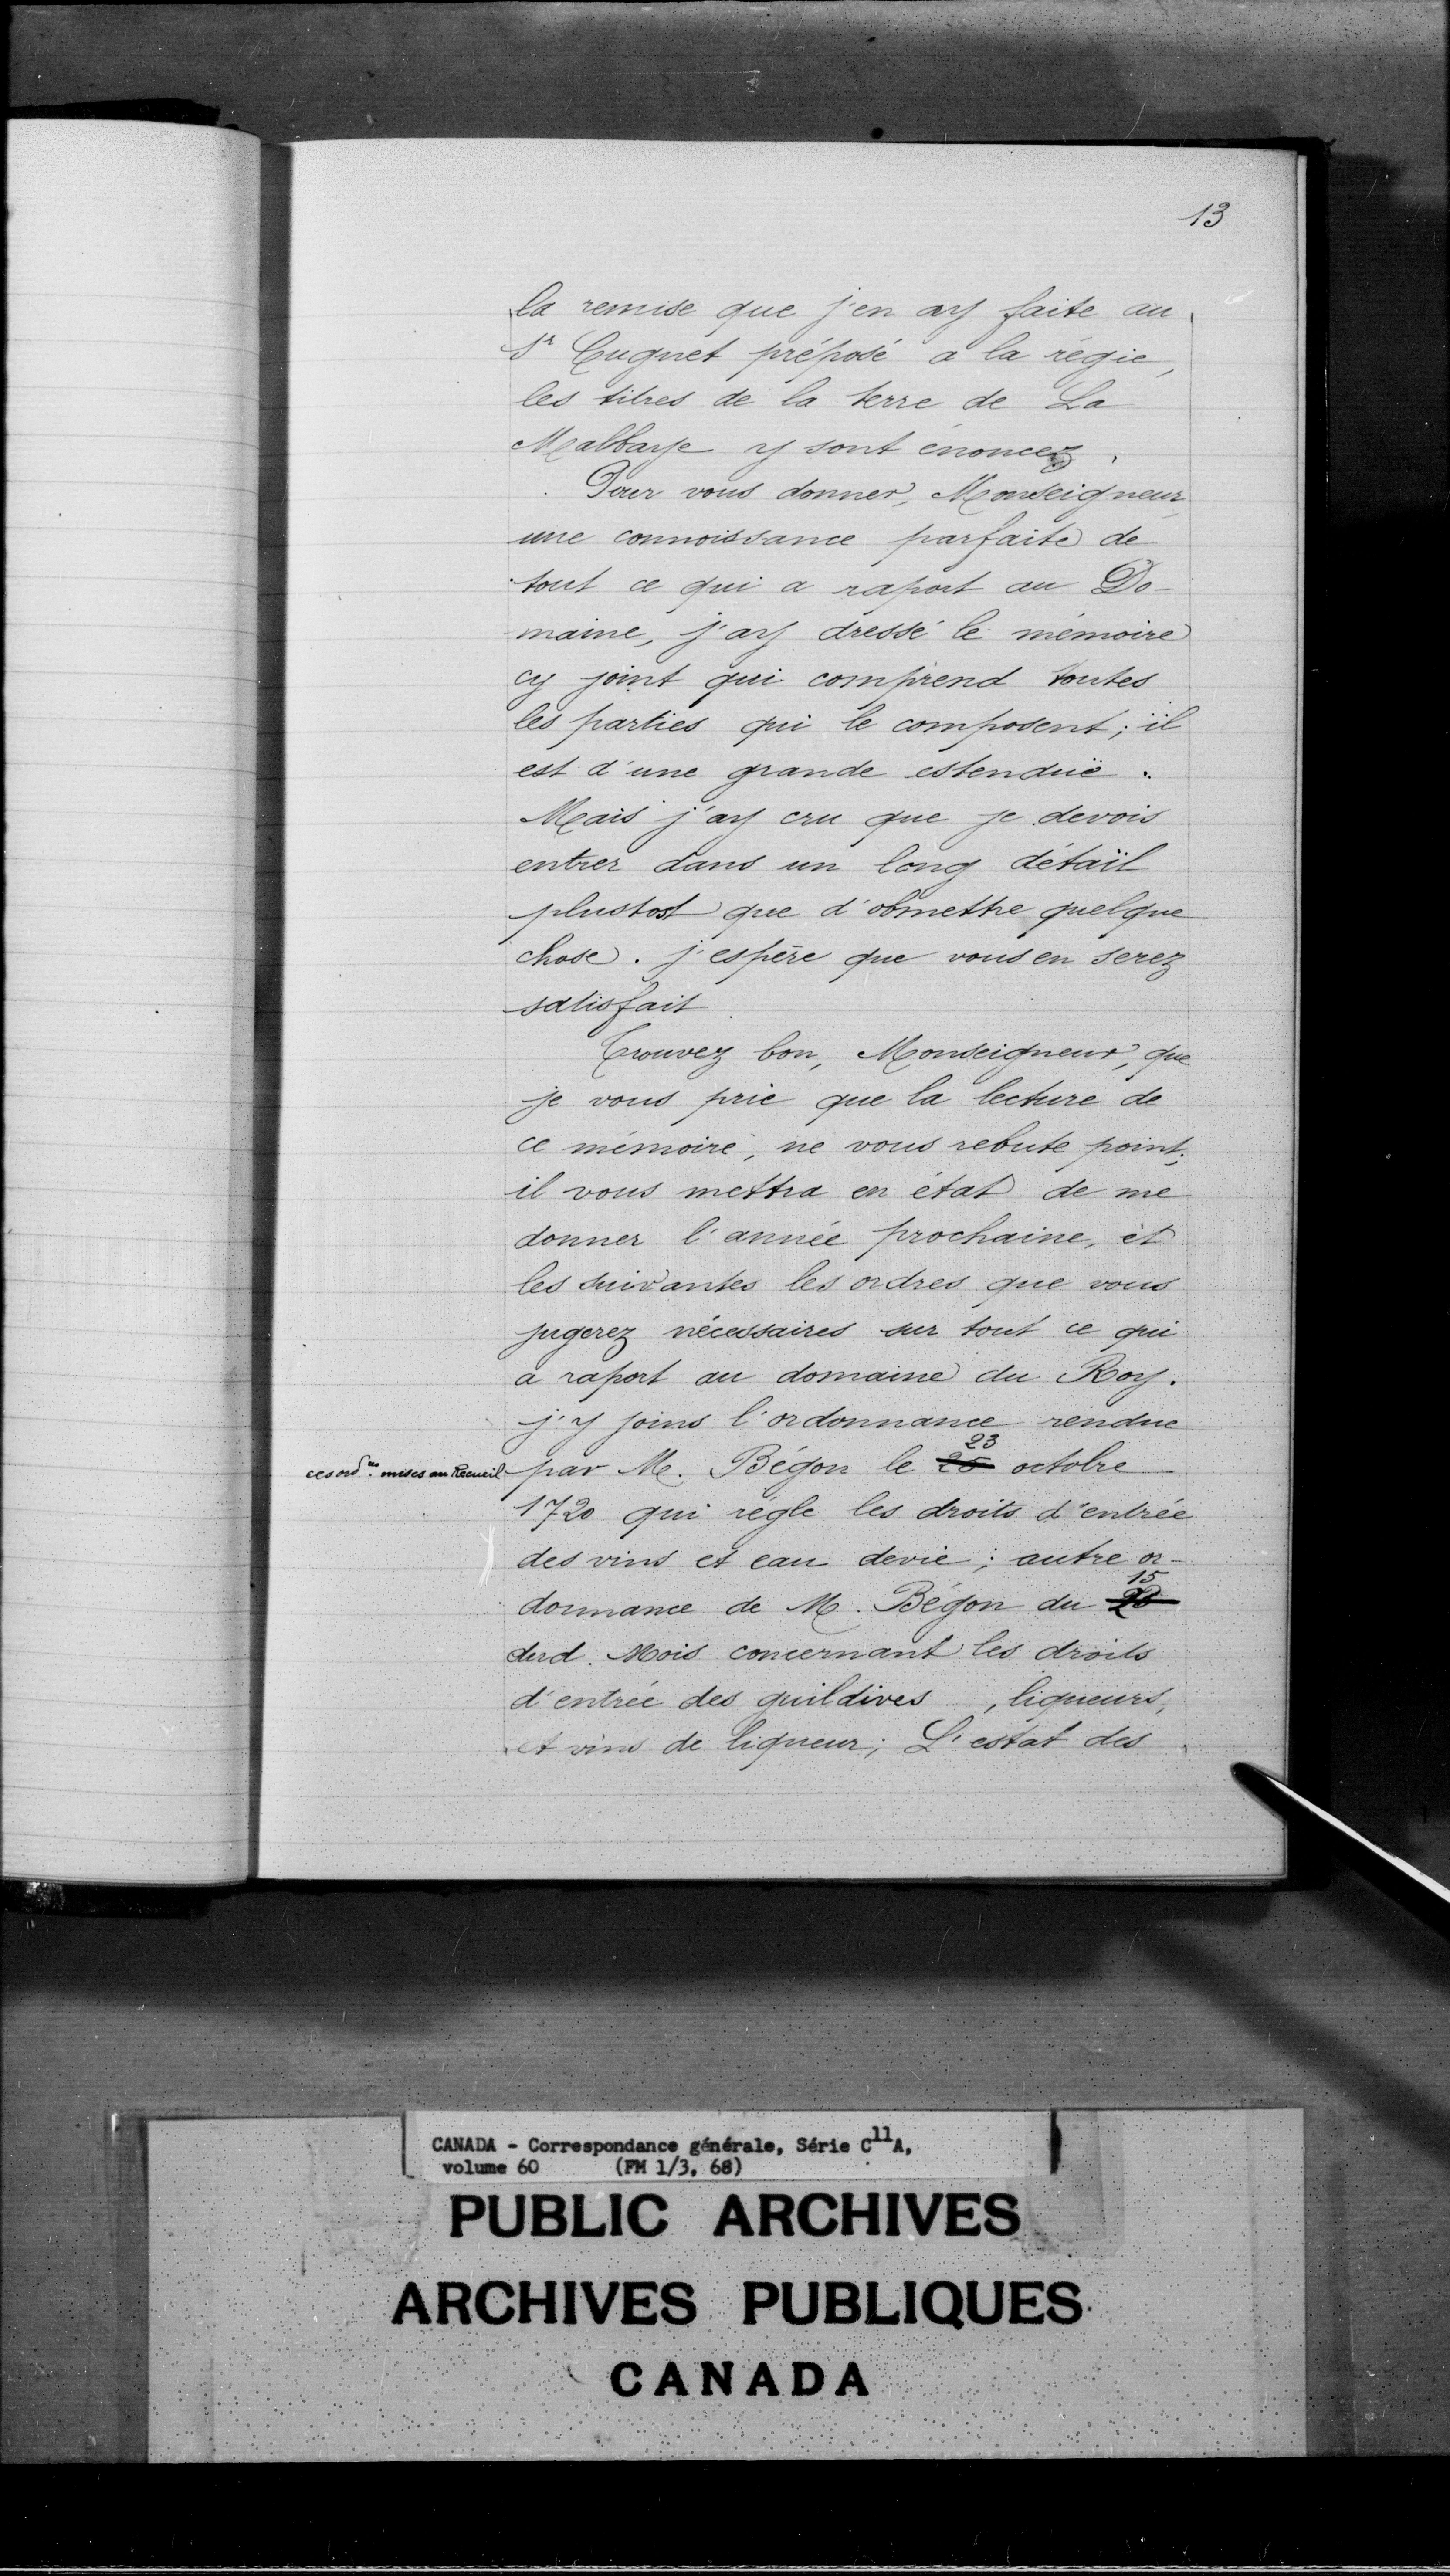 13
la remise que j'en ay faite au
Sr Cugnet préposé a la régie,
les titres de la terre de La
Malbaye y sont énoncez.
Pour vous donner, Monseigneur,
une connoissance parfaite de
tout ce qui a raport au Do-
maine, j'ay dressé le mémoire
cy joint qui comprend toutes
les parties qui le composent; il
est d'une grande estenduë.
Mais j'ay cru que je devois
entrer dans un long détail
plustost que d'obmettre quelque
chose. j'espère que vous en serez
satisfait.
Trouvez bon, Monseigneur, que
je vous prie que la lecture de
ce mémoire, ne vous rebute point;
il vous mettra en état de me
donner l'année prochaine, et
les suivantes les ordres que vous
jugerez nécessaires sur tout ce qui
a raport au domaine du Roy.
j'y joins l'ordonnance rendue
23
ces ordces mises au Recueil
par M. Bégon le 25 octobre
1720 qui règle les droits d'entrée
des vins et eau devie; autre or-
15
donnance de M. Bégon du
dud. Mois concernant les droits
d'entrée des guildives, liqueurs,
et vins de liqueur; L'estat des
CANADA - Correspondance générale, Série C11A,
volume 60 (FM 1/3, 68)
PUBLIC ARCHIVES
ARCHIVES PUBLIQUES
CANADA